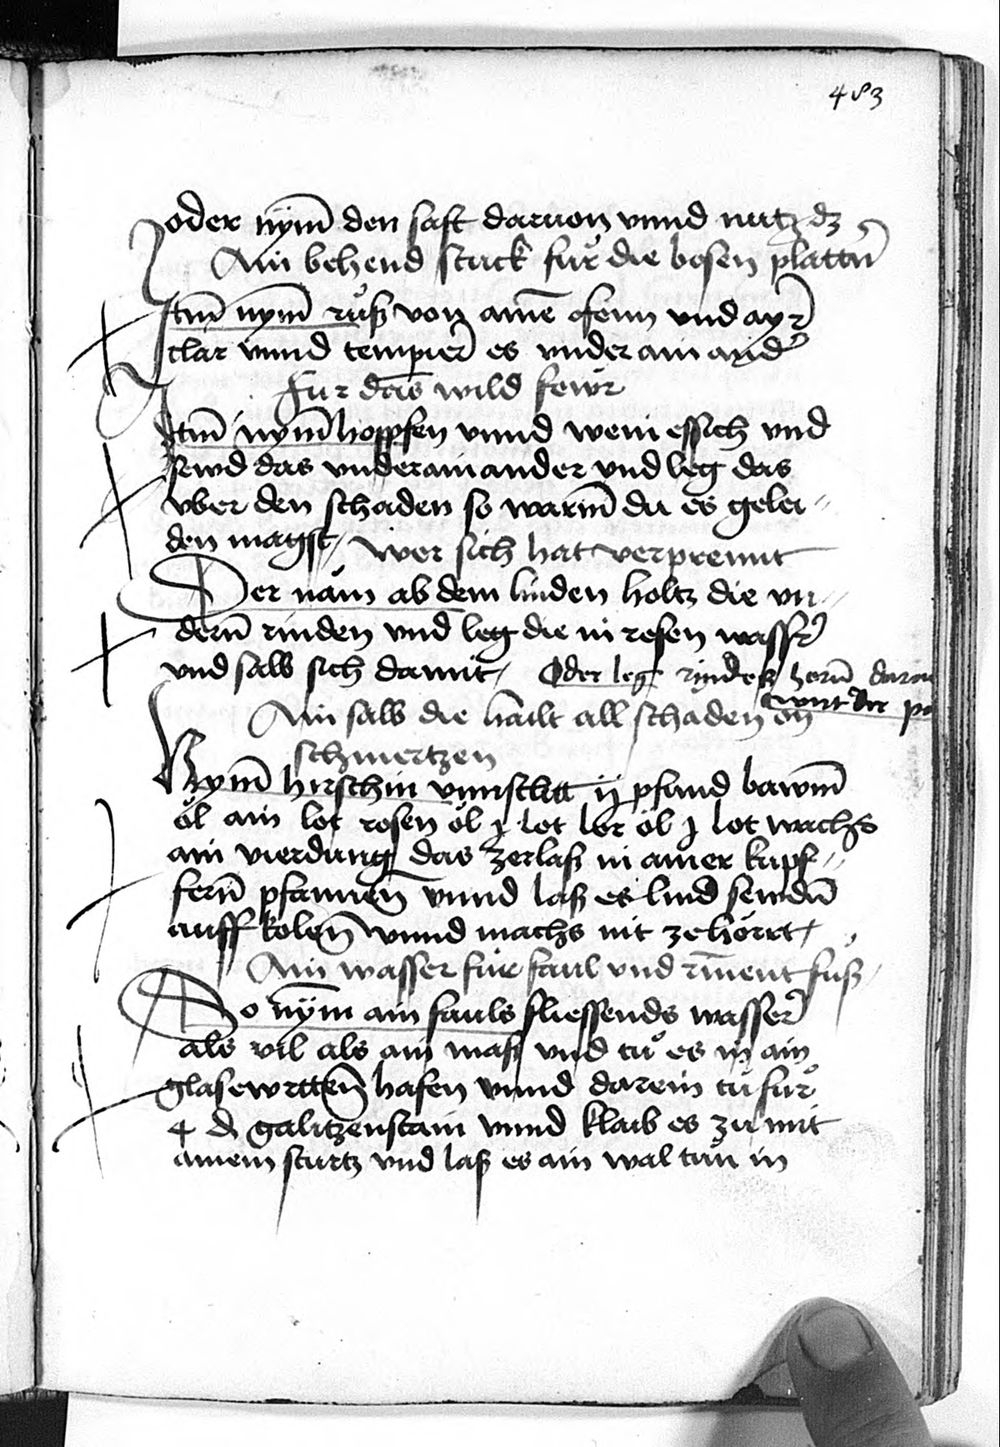 483
oder nym̄ den saft daruon vnnd nutz dz
Ain behend stuck fúr die bosen plattn̄
Itm̄ nym̄ růß von aine͂ ofenn vnd ayr
clar vnnd tempier es vnder ain and͛
Fur das wild fewr
Itm̄ nym̄ hopffen vnnd wein essich vnd
sewd das vnderainander vnd leg das
vber den schaden so warm̄ du es gelei-
den magst / wer sich hat verprennt
Der näm ab dem linden holtz die vn-
dern̄ rinden vnd leg die in rosen wasser
vnd salb sich damit / Oder leg rinders hern̄
wirt der
Ain salb die hailt all schaden on
schmertzen
Nym̄ hirschin vnnschlitt ij pfund bawm̄
öl ain lot rosen öl j lot lor öl j lot wachs
ain vierdung das zerlaß in ainer kupf-
fern̄ pfannen vnnd laß es lind sewdn̄
auff kolen vnnd machs nit zehörtt /
Ain wasser für faul vnd rinent fuß /
So nym ain fauls fliessends wasser
als vil als ain maß vnd tů es in ain
glasewrtten hafen vnnd darein tů fur
4 ₰ galitzenstain vnnd klaib es zu mit
ainem sturtz vnd laß es ain wal tun in